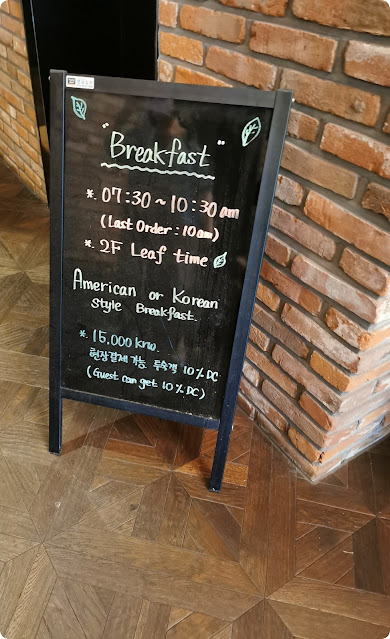 "Breakfast"
*. 07:30 ~ 10:30 am
(Last Order : 10am)
*. 2F Leaf time
American or Korean
Style Breakfast.
*. 15,000 krw.
현장결제 가능 투숙객 10% DC
(Guest can get 10% DC)